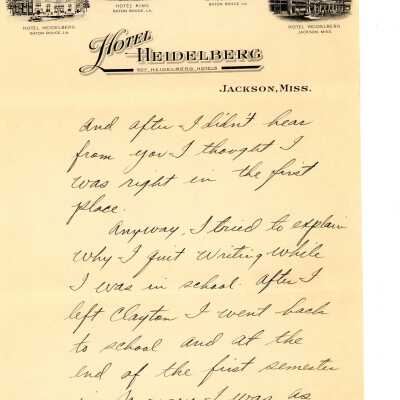 HOTEL HEIDELBERG
BATON ROUGE, LA.
HOTEL KING
BATON ROUGE, LA.
HOTEL HEIDELBERG
JACKSON, MISS.
HOTEL HEIDELBERG
ROY HEIDELBERG HOTELS
JACKSON, MISS.
and after I didn't hear
from you I thought I
was right in the first
place.
Anyway, I tried to explain
why I quit writing while
I was in school. After I
left Clayton I went back
to school and at the
end of the first semester
I was as